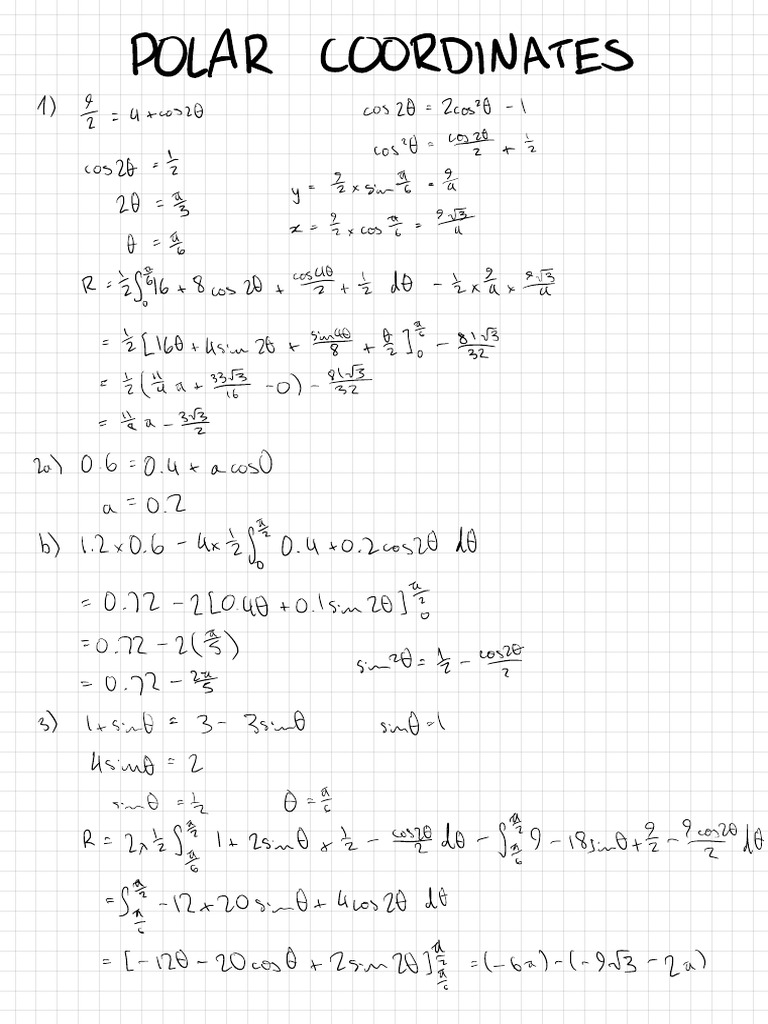 POLAR COORDINATES
1) 9/2 = 4 + cos2θ    cos2θ = 2cos²θ - 1
cos²θ = cos2θ/2 + 1/2
cos2θ = 1/2
2θ = π/3    y = 9/2 × sin π/6 = 9/4
θ = π/6    x = 9/2 × cos π/6 = 9√3/4
R = 1/2 ∫₀^(π/6) 16 + 8cos2θ + cos4θ/2 + 1/2 dθ - 1/2 × 9/4 × 9√3/4
= 1/2 [16θ + 4sin2θ + sin4θ/8 + θ/2]₀^(π/6) - 81√3/32
= 1/2 (11/4 π + 33√3/16 - 0) - 81√3/32
= 11/8 π - 3√3/2
2a) 0.6 = 0.4 + a cos0
a = 0.2
b) 1.2 × 0.6 - 4 × 1/2 ∫₀^(π/2) 0.4 + 0.2cos2θ dθ
= 0.72 - 2[0.4θ + 0.1sin2θ]₀^(π/2)
= 0.72 - 2(π/5)
sin²θ = 1/2 - cos2θ/2
= 0.72 - 2π/5
3) 1 + sinθ = 3 - 3sinθ    sinθ = 1
4sinθ = 2
sinθ = 1/2    θ = π/6
R = 2 × 1/2 ∫_(π/6)^(π/2) 1 + 2sinθ + 1/2 - cos2θ/2 dθ - ∫_(π/6)^(π/2) 9 - 18sinθ + 9/2 - 9cos2θ/2 dθ
= ∫_(π/6)^(π/2) -12 + 20sinθ + 4cos2θ dθ
= [-12θ - 20cosθ + 2sin2θ]_(π/6)^(π/2) = (-6π) - (-9√3 - 2π)